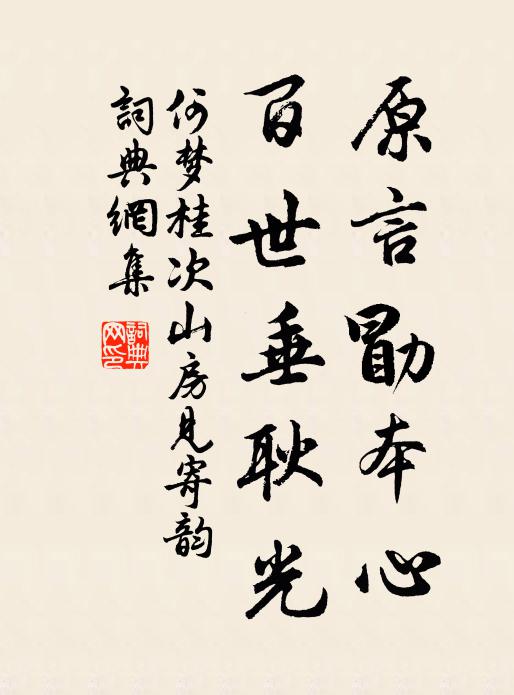 原言勖本心
百世垂耿光
何梦桂次山房見寄韵
詞典網集
詞典网印